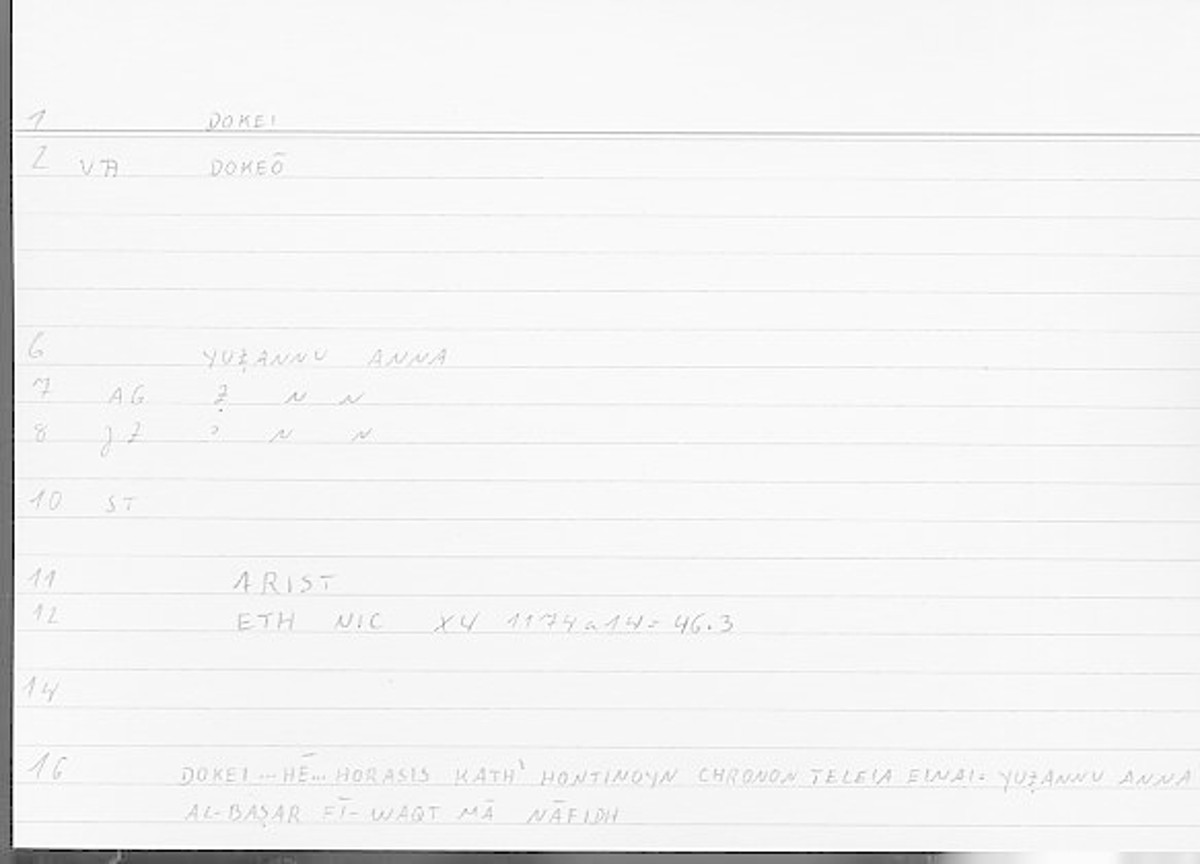 1 DOKEI
2 VA DOKEŌ
6 YUẒANNU ANNA
7 AG Ẓ N N
8 N N
10 ST
11 ARIST
12 ETH NIC X4 1174a14= 46.3
14
16 DOKEI...HĒ... HORASIS KATH' HONTINOYN CHRONON TELEIA EINAI= YUẒANNU ANNA
AL-BAṢAR FĪ- WAQT MĀ NĀFIDH